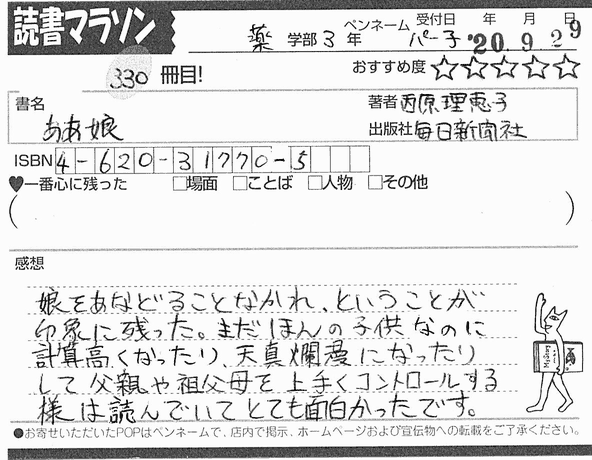 読書マラソン
薬 学部 3 年 ペンネーム パー子 受付日 年 月 日 '20. 9. 29
330 冊目!
おすすめ度 ☆☆☆☆☆
書名 ああ娘
著者 西原理恵子
出版社 毎日新聞社
ISBN 4-620-31770-5
♥一番心に残った □場面 □ことば □人物 □その他
( )
感想
娘をあなどることなかれ、ということが
印象に残った。まだほんの子供なのに
計算高くなったり、天真爛漫になったり
して父親や祖父母を上手くコントロールする
様は読んでいてとても面白かったです。
●お寄せいただいたPOPはペンネームで、店内で掲示、ホームページおよび宣伝物への転載をご了承ください。